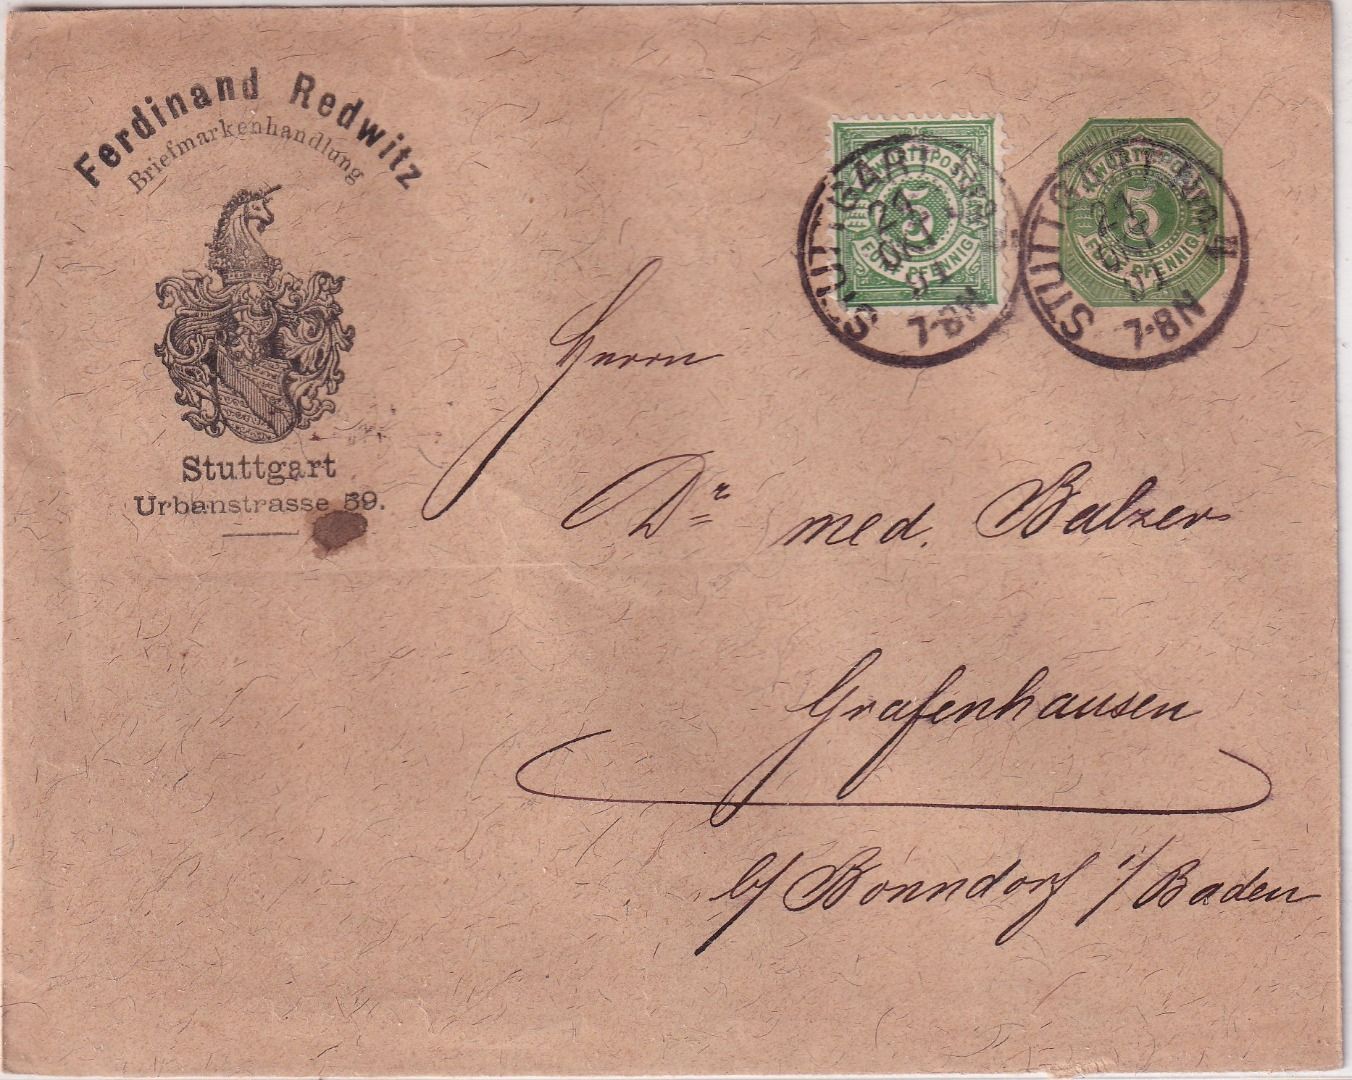 Ferdinand Redwitz
Briefmarkenhandlung
Stuttgart
Urbanstrasse 59.
WÜRTT. POST
5
FÜNF PFENNIG
STUTTGART
OKT
91
7-8N
5
FÜNF PFENNIG
STUTTG
21
OKT
91
7-8N
Herrn
Dr med. Balzer
Grafenhausen
b/ Bonndorf i/Baden